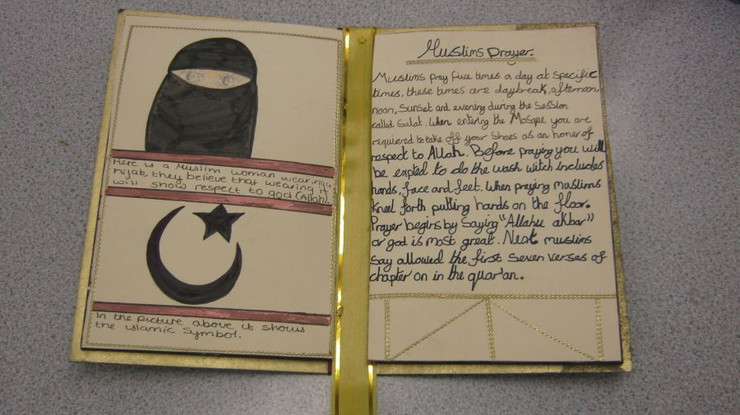 Here is a Muslim woman wearing a
hijab, they believe that wearing it
will show respect to god (Allah).
In the picture above it shows
the islamic symbol.
Muslims prayer.
Muslims pray five times a day at specific
times, these times are daybreak, afternoon
noon, sunset and evening during the session
called Salat. When entering the Mosque you are
required to take off your shoes as an honer of
respect to Allah. Before praying you will
be expted to do the wash witch includes
hands, face and feet. when praying muslims
kneel forth putting hands on the floor.
Prayer begins by saying "Allahu akbar"
or god is most great. Next muslims
say allowed the first seven verses of
chapter on in the quar'an.